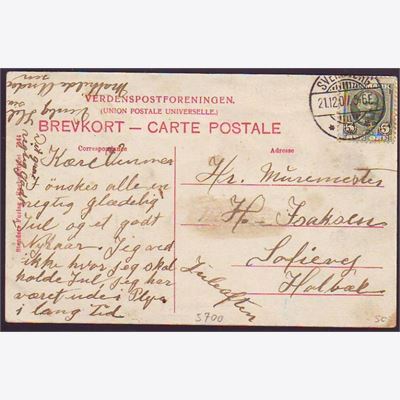 VERDENSPOSTFORENINGEN.
(UNION POSTALE UNIVERSELLE.)
BREVKORT — CARTE POSTALE
Correspondance
Adresse
SVENDBORG
21.12.07
5 5
Mathilde
Kære
I ønskes alle en
rigtig glædelig
Jul og et godt
Nytaar. Jeg ved
ikke hvor jeg skal
holde Jul, jeg har
været ude i
i lang Tid
Hr. Muremester
H. Isaksen
Sofievej
Holbæk
Juleaften
5700
50